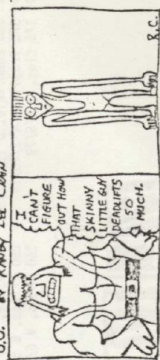 BY RANDY LEE
I
CAN'T
FIGURE
OUT HOW
THAT
SKINNY
LITTLE GUY
DEADLIFTS
SO
MUCH.
R.C.